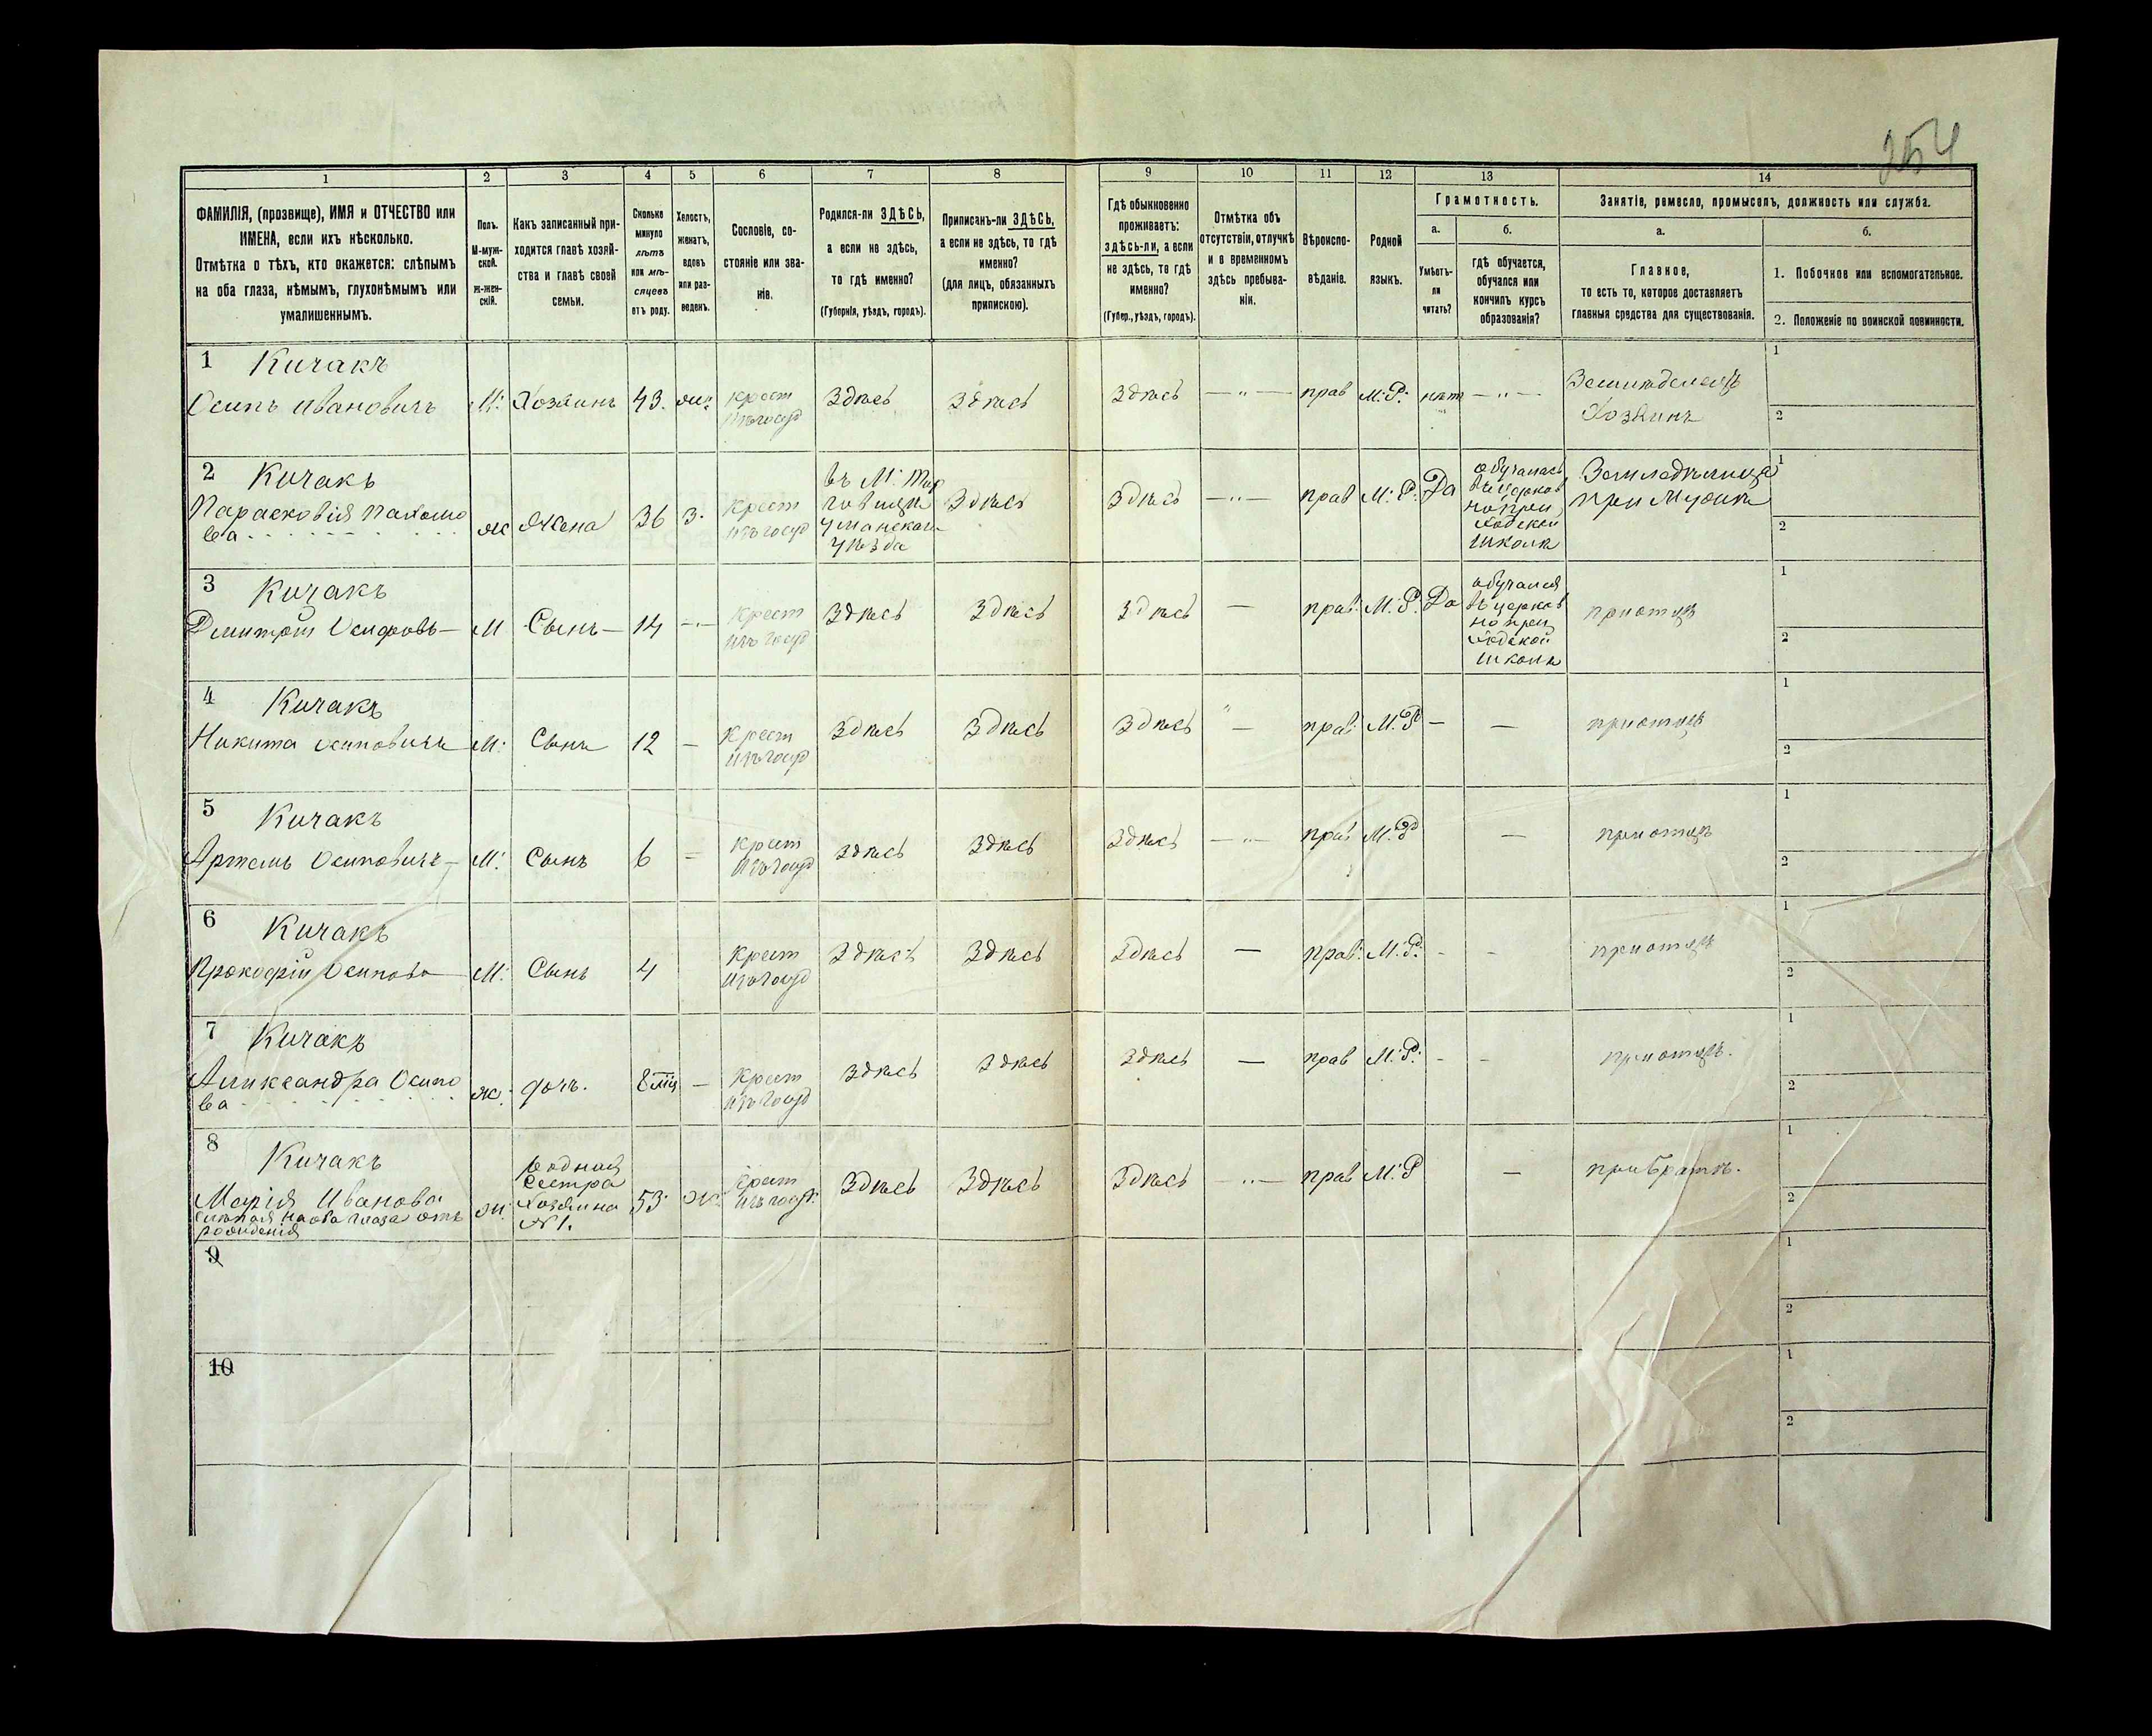 254
1 2 3 4 5 6 7 8 9 10 11 12 13 14
ФАМИЛІЯ, (прозвище), ИМЯ и ОТЧЕСТВО или
ИМЕНА, если ихъ нѣсколько.
Отмѣтка о тѣхъ, кто окажется: слѣпымъ
на оба глаза, нѣмымъ, глухонѣмымъ или
умалишеннымъ.
Полъ.
М-муж-
ской.
Ж-жен-
скій.
Какъ записанный при-
ходится главѣ хозяй-
ства и главѣ своей
семьи.
Сколько
минуло
лѣтъ
или мѣ-
сяцевъ
отъ роду.
Холостъ,
женатъ,
вдовъ
или раз-
веденъ.
Сословіе, со-
стояніе или зва-
ніе.
Родился-ли ЗДѢСЬ,
а если не здѣсь,
то гдѣ именно?
(Губернія, уѣздъ, городъ).
Приписанъ-ли ЗДѢСЬ,
а если не здѣсь, то гдѣ
именно?
(для лицъ, обязанныхъ
припискою).
Гдѣ обыкновенно
проживаетъ:
здѣсь-ли, а если
не здѣсь, то гдѣ
именно?
(Губер., уѣздъ, городъ).
Отмѣтка объ
отсутствіи, отлучкѣ
и о временномъ
здѣсь пребыва-
ніи.
Вѣроиспо-
вѣданіе.
Родной
языкъ.
Грамотность.
а.
Умѣетъ-
ли
читать?
б.
гдѣ обучается,
обучался или
кончилъ курсъ
образованія?
Занятіе, ремесло, промыселъ, должность или служба.
а.
Главное,
то есть то, которое доставляетъ
главныя средства для существованія.
б.
1. Побочное или вспомогательное.
2. Положеніе по воинской повинности.
1 Кичакъ
Осипъ Ивановичъ М: Хозяинъ 43. жен: крест
изъ госуд Здѣсь Здѣсь Здѣсь — " — прав М: Р: нѣт — " — Земледелецъ
Хозяинъ
1
2
2 Кичакъ
Парасковія Пахомо
ва ж Жена 36 З. крест
изъ госуд
въ М. Тор
говицѣ
Уманскаго
Уѣзда
Здѣсь Здѣсь — " — прав М: Р: Да
обучалась
въ церков
но при
ходской
школѣ
Земледѣлица
при Мужѣ
1
2
3 Кичакъ
Дмитрій Осифовъ — М Сынъ — 14 — крест
изъ госуд Здѣсь Здѣсь Здѣсь — прав: М: Р: Да
обучался
въ церков
но при
ходской
школѣ
при отцѣ
1
2
4 Кичакъ
Никита Осиповичъ М: Сынъ 12 — крест
изъ госуд Здѣсь Здѣсь Здѣсь — прав: М. Р — — при отцѣ
1
2
5 Кичакъ
Артемъ Осиповичъ — М: Сынъ 6 — крест
изъ госуд здѣсь здѣсь здѣсь — " — прав М. Р — при отцѣ
1
2
6 Кичакъ
Прокофій Осипова М: Сынъ 4 крест
изъ госуд Здѣсь Здѣсь Здѣсь — прав: М. Р: - - при отцѣ
1
2
7 Кичакъ
Александра Осипо
ва ж: дочь. 8 крест
изъ госуд здѣсь здѣсь здѣсь — прав М: Р: - - при отцѣ.
1
2
8 Кичакъ
Марія Иванова
слѣпая на оба глаза отъ
рожденія
ж:
родная
сестра
хозяина
№ 1.
53 крест
изъ госуд: Здѣсь Здѣсь Здѣсь — " — прав М: Р — при Братѣ.
1
2
9
1
2
10
1
2